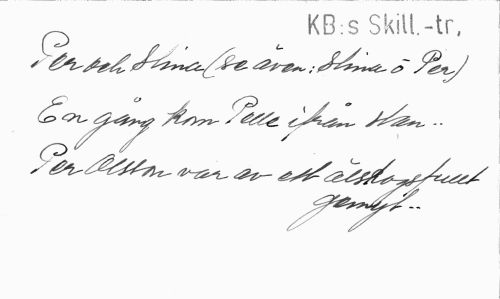 KB:s Skill.-tr.
Per och Stina (se även: Stina o Per)
En gång kom Pelle ifrån stan..
Per Olsson var av ett älskogsfullt
gemyt..